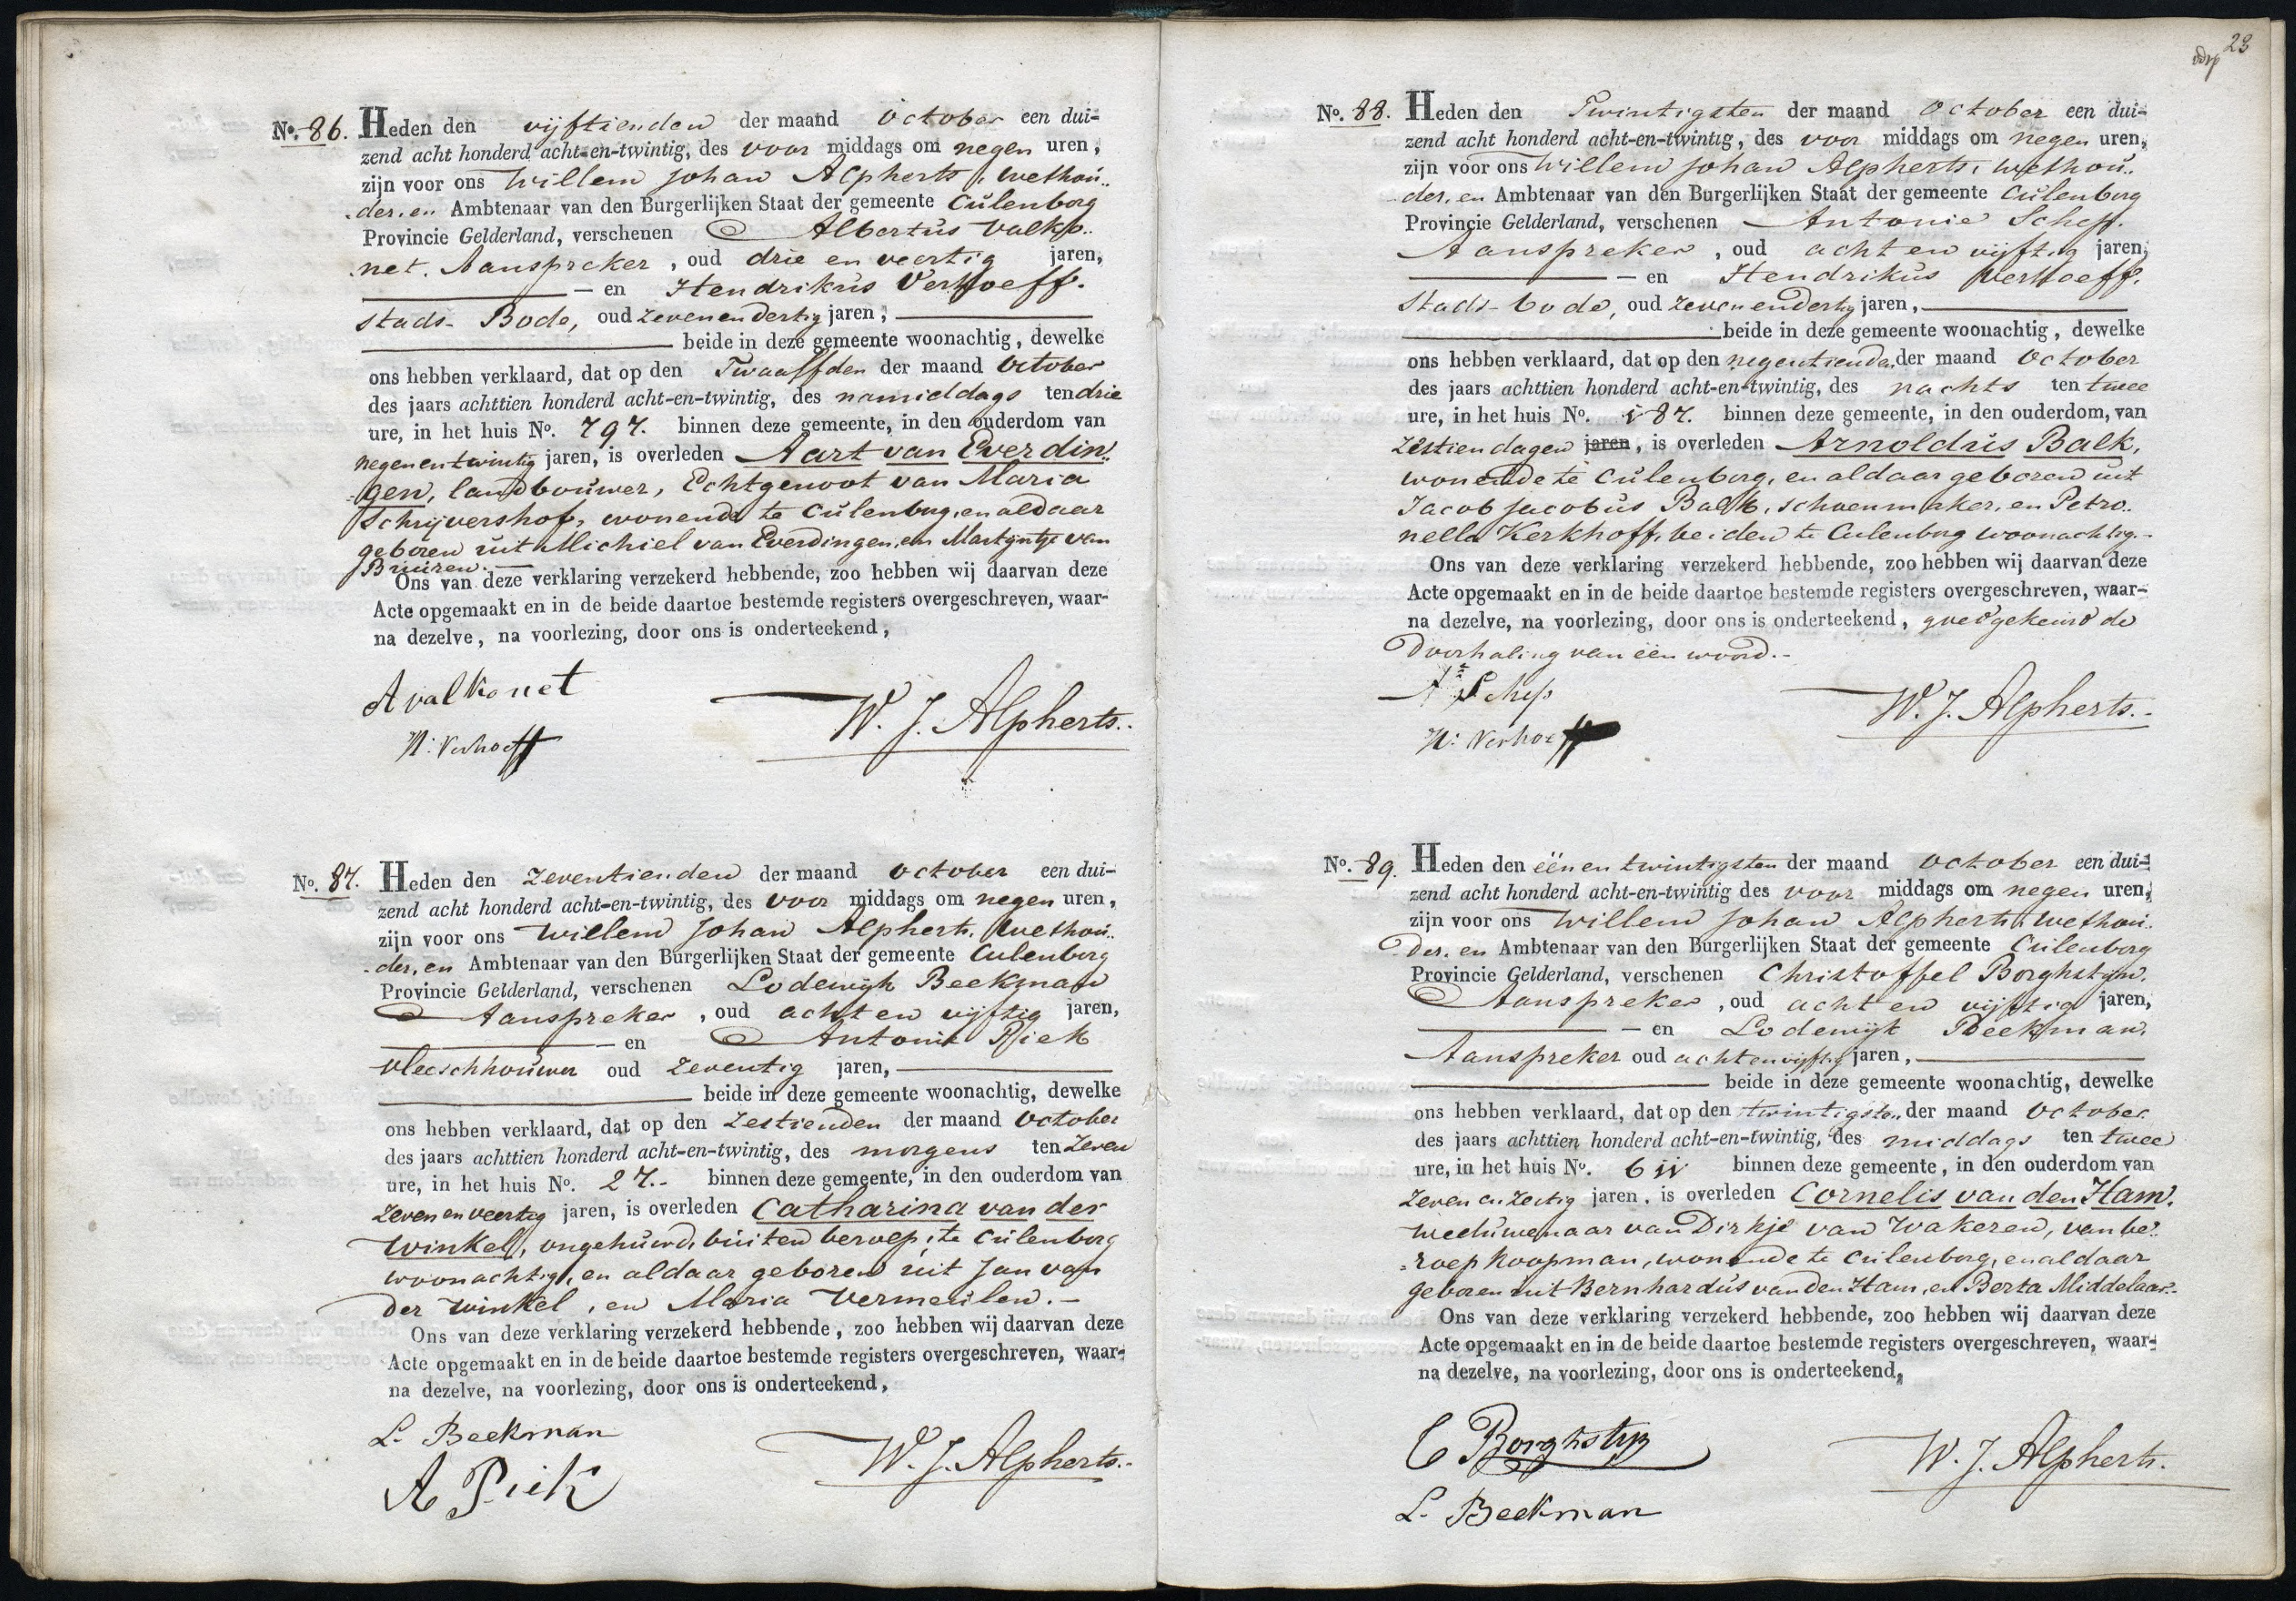 No. 86. Heden den vijftienden der maand October een dui-
zend acht honderd acht-en-twintig, des voor middags om negen uren,
zijn voor ons Willem Johan Alpherts, wethou-
der, en Ambtenaar van den Burgerlijken Staat der gemeente Culenborg
Provincie Gelderland, verschenen Albertus Valko-
net. Aanspreker, oud drie en veertig jaren,
en Hendrikus Verhoeff.
Stads-Bode, oud zevenendertig jaren,
beide in deze gemeente woonachtig, dewelke
ons hebben verklaard, dat op den Twaalfden der maand October
des jaars achttien honderd acht-en-twintig, des namiddags ten drie
ure, in het huis No. 797. binnen deze gemeente, in den ouderdom van
negenentwintig jaren, is overleden Aart van Everdin-
gen, landbouwer, Echtgenoot van Maria
Schrijvershof, wonende te Culenborg, en aldaar
geboren uit Michiel van Everdingen, en Martijntje van
Buuren.
Ons van deze verklaring verzekerd hebbende, zoo hebben wij daarvan deze
Acte opgemaakt en in de beide daartoe bestemde registers overgeschreven, waar-
na dezelve, na voorlezing, door ons is onderteekend,
A valkonet
W. J. Alpherts.
H: Verhoeff
No. 87. Heden den zeventienden der maand October een dui-
zend acht honderd acht-en-twintig, des voor middags om negen uren,
zijn voor ons Willem Johan Alpherts, wethou-
der, en Ambtenaar van den Burgerlijken Staat der gemeente Culenborg
Provincie Gelderland, verschenen Lodewijk Beekman
Aanspreker, oud acht en vijftig jaren,
en Antonie Piek
vleeschhouwer oud zeventig jaren,
beide in deze gemeente woonachtig, dewelke
ons hebben verklaard, dat op den zestienden der maand October
des jaars achttien honderd acht-en-twintig, des morgens ten zeven
ure, in het huis No. 27. binnen deze gemeente, in den ouderdom van
zeven en veertig jaren, is overleden Catharina van der
Winkel, ongehuwd, buiten beroep, te Culenborg
woonachtig, en aldaar geboren uit Jan van
der Winkel, en Maria Vermeulen.
Ons van deze verklaring verzekerd hebbende, zoo hebben wij daarvan deze
Acte opgemaakt en in de beide daartoe bestemde registers overgeschreven, waar-
na dezelve, na voorlezing, door ons is onderteekend,
L. Beekman
W. J. Alpherts.
A Piek
23
No. 88. Heden den Twintigsten der maand October een dui-
zend acht honderd acht-en-twintig, des voor middags om negen uren,
zijn voor ons Willem Johan Alpherts, wethou-
der, en Ambtenaar van den Burgerlijken Staat der gemeente Culenborg
Provincie Gelderland, verschenen Antonie Schep.
Aanspreker, oud acht en vijftig jaren,
en Hendrikus Verhoeff.
Stads-bode, oud zevenendertig jaren,
beide in deze gemeente woonachtig, dewelke
ons hebben verklaard, dat op den negentienden der maand October
des jaars achttien honderd acht-en-twintig, des nachts ten twee
ure, in het huis No. 187. binnen deze gemeente, in den ouderdom, van
zestien dagen jaren, is overleden Arnoldus Balk,
wonende te Culenborg, en aldaar geboren uit
Jacob Jacobus Balk, schoenmaker, en Petro-
nella Kerkhoff, beiden te Culenborg woonachtig.
Ons van deze verklaring verzekerd hebbende, zoo hebben wij daarvan deze
Acte opgemaakt en in de beide daartoe bestemde registers overgeschreven, waar-
na dezelve, na voorlezing, door ons is onderteekend, goedgekeurd de
doorhaling van één woord.
A Schep
W. J. Alpherts.
H: Verhoeff
No. 89. Heden den éénentwintigsten der maand October een dui-
zend acht honderd acht-en-twintig des voor middags om negen uren,
zijn voor ons Willem Johan Alpherts, wethou-
der, en Ambtenaar van den Burgerlijken Staat der gemeente Culenborg
Provincie Gelderland, verschenen Christoffel Borghstijn.
Aanspreker, oud acht en vijftig jaren,
en Lodewijk Beekman,
Aanspreker oud achtenvijftig jaren,
beide in deze gemeente woonachtig, dewelke
ons hebben verklaard, dat op den twintigsten der maand October
des jaars achttien honderd acht-en-twintig, des middags ten twee
ure, in het huis No. 611 binnen deze gemeente, in den ouderdom van
zeven en zestig jaren, is overleden Cornelis van den Ham,
weduwenaar van Dirkje van Wakeren, van be-
roep koopman, wonende te Culenborg, en aldaar
geboren uit Bernhardus van den Ham, en Berta Middelaar.
Ons van deze verklaring verzekerd hebbende, zoo hebben wij daarvan deze
Acte opgemaakt en in de beide daartoe bestemde registers overgeschreven, waar-
na dezelve, na voorlezing, door ons is onderteekend,
C Borghstijn
W. J. Alpherts.
L. Beekman